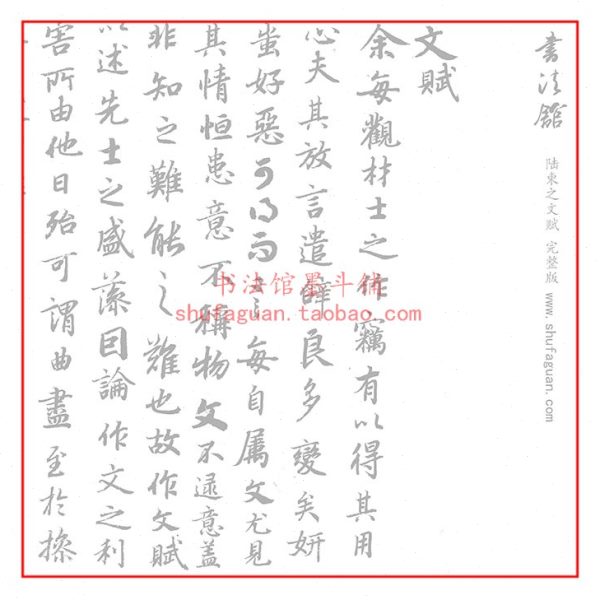 書法館
陆柬之文赋 完整版 www.shufaguan.com
文賦
余每觀材士之作竊有以得其用
心夫其放言遣辭良多變矣妍
蚩好惡可得而言每自属文尤見
其情恒患意不稱物文不逮意盖
非知之難能之難也故作文賦
以述先士之盛藻因論作文之利
害所由他日殆可謂曲盡至於操
书法馆墨斗铺
shufaguan.taobao.com